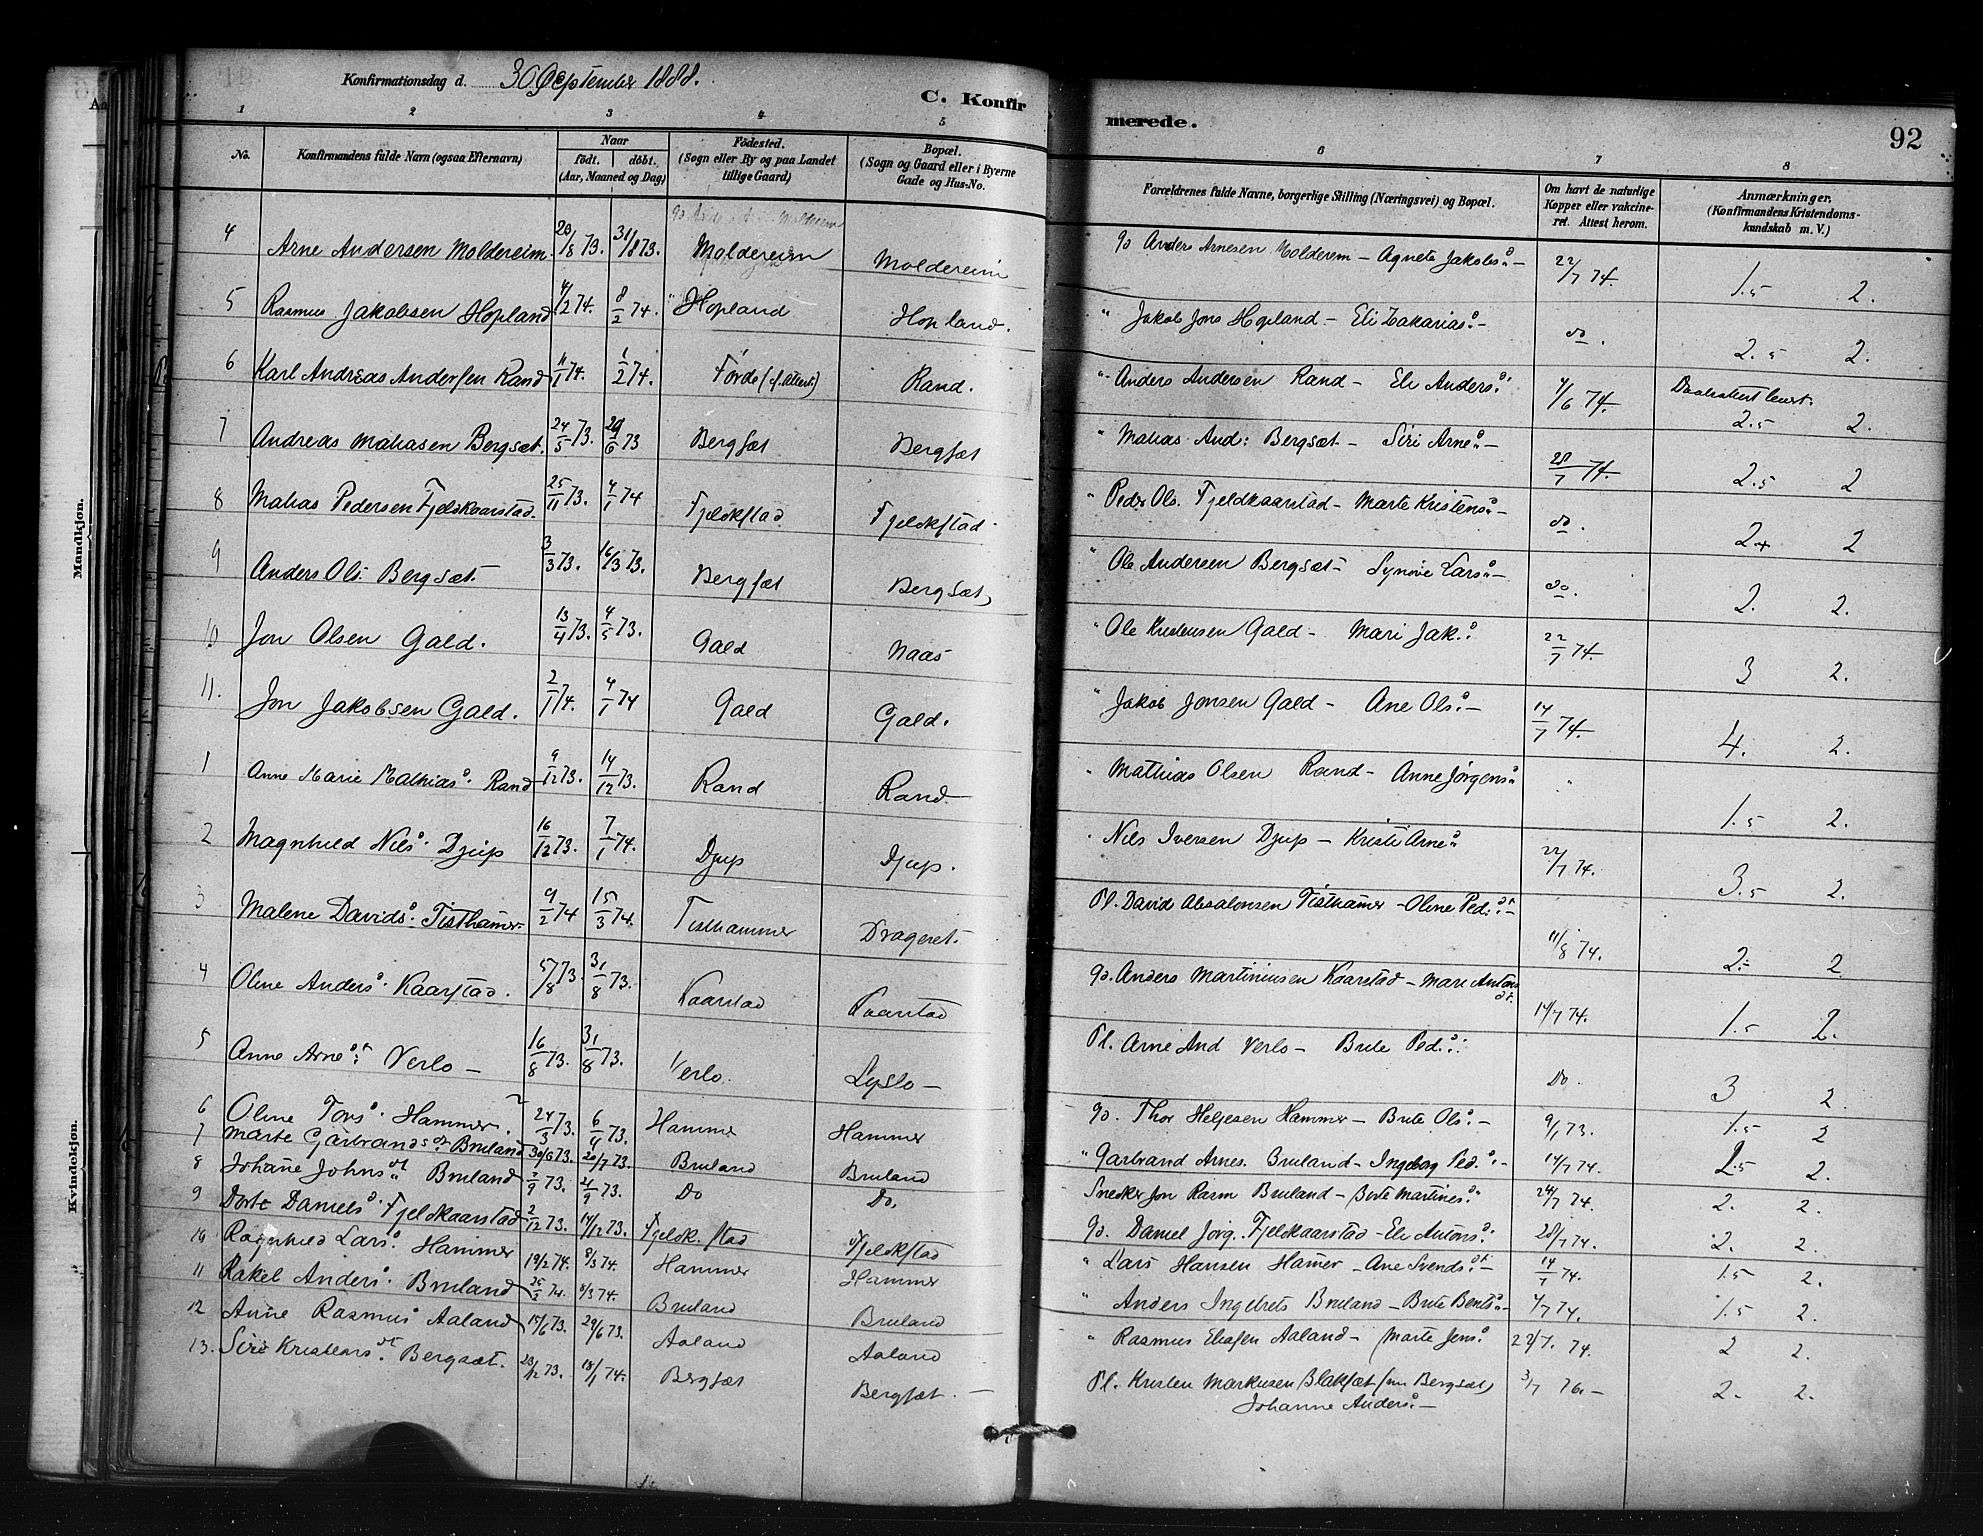 Konfirmationsdag d. 30 September 1888.
C. Konfirmerede.
92
1 2 3 4 5 6 7 8
No. Konfirmandens fulde Navn (ogsaa Efternavn) Naar født. døbt. (Aar, Maaned og Dag) Födested. (Sogn eller By og paa Landet tillige Gaard) Bopæl. (Sogn og Gaard eller i Byerne Gade og Hus-No. Forældrenes fulde Navne, borgerlige Stilling (Næringsvei) og Bopæl. Om havt de naturlige Kopper eller vakcineret. Attest herom. Anmærkninger. (Konfirmandens Kristendomskundskab m. V.)
Mandkjøn.
4 Arne Andersen Moldereim 20/8 73. 31/8 73. Moldereim Moldereim Gd Anders Arnesen Molderem - Agnete Jakobsd. - 22/7 74. 1.5 2.
5 Rasmus Jakobsen Hopland 4/2 74. 8/2 74. " Hopland Hopland. " Jakob Jons Hopland - Eli Zakariasd. - do. 2.5 2.
6 Karl Andreas Andersen Rand 11/1 74. 1/2 74. Förde Rand. " Anders Andersen Rand - Eli Andersd. 4/6 74. 2.5 2.
7 Andreas Matiasen Bergsæt. 24/5 73. 29/6 73 Bergsæt Bergsæt " Matias And: Bergsæt - Siri Arned. - 28/7 74. 2.5 2
8 Matias Pedersen Fjeldkaarstad. 25/11 73. 4/1 74 Fjeldkstad Fjeldkstad. " Peder Ols. Fjeldkaarstad - Marte Kristensd. - do. 2+ 2
9 Anders Ols. Bergsæt 3/3 73. 16/3 73. Bergsæt Bergsæt " Ole Andersen Bergsæt - Synøve Larsd. - do. 2. 2.
10 Jon Olsen Gald. 13/4 73. 4/5 73. Gald Naas " Ole Kristensen Gald - Mari Jak.d. 22/7 74. 3 2.
11. Jon Jakobsen Gald. 2/1 74. 4/1 74 Gald Gald. " Jakob Jonsen Gald - Ane Olsd. - 14/7 74. 4. 2.
Kvindekjøn.
1 Anne Marie Mathiasd. Rand 9/12 73. 14/12 73. Rand Rand " Mathias Olsen Rand - Anne Jørgensd. " 1.5 2.
2 Magnhild Nilsd. Djup 16/12 73. 7/1 74. Djup Djup. " Nils Iversen Djup - Kristi Arned. 22/7 74. 3.5 2.
3 Malene Davidsd. Tisthamer 9/2 74 15/3 74. Tisthammer Drageset. Pl. David Absalonsen Tisthamer - Oline Ped.dt. - 11/8 74. 2.- 2
4 Oline Andersd. Kaarstad. 5/8 73. 31/8 73. Kaarstad Kaarstad Gd. Anders Martiniusen Kaarstad - Mari Antonsdt. 14/7 74. 1.5 2.
5 Anne Arnedt. Verlo - 16/8 73. 31/8 73. Verlo. Lyslo - Pl. Arne And Verlo - Brite Ped.d. Do. 3 2
6 Oline Torsd. Hammer. 24/3 73. 6/4 73. Hammer Hammer Gd. Thor Heljesen Hammer - Brite Olsd. - 9/1 73. 1.5 2
7 Marte Garbrandsdt. Bruland 30/6 73. 20/7 73. Bruland Bruland " Garbrand Arnes. Bruland - Ingeborg Ped.d. - 14/7 74. 2.5 2.
8 Johane Johnsdt. Bruland 7/9 73. 21/9 73. Do Do, Snedker Jon Rasm Bruland - Berte Martinesd. 24/7 74. 2. 2.
9 Dorte Danielsd. Fjeldkaarstad 2/12 73. 14/12 73. Fjeldk.stad Fjeldkstad Gd. Daniel Jørg. Fjeldkaarstad - Eli Antonsd. 28/7 74. 2. 2.
10 Ragnhild Larsd. Hammer 19/2 74. 8/3 74. Hammer Hammer " Lars Hansen Hamer - Ane Svendsdt. - 14/7 74. 1.5 2.
11 Rakel Andersd. Bruland 25/2 74. 8/3 74. Bruland Bruland " Anders Ingebrets Bruland - Brite Bentsd. - 4/7 74. 1.5 2.
12 Anne Rasmusd Aaland 15/6 73. 29/6 73. Aaland Aaland " Rasmus Eliasen Aaland - Marte Jensd. 22/7. 74. 2 2.
13. Siri Kristensdt. Bergsæt. 23/12 73. 18/1 74. Bergsæt Bergsæt. - Pl. Kristen Markusen Blaksæt (nu Bergsæt) 3/7 76. - 2. 2.
Johanne Andersd. -